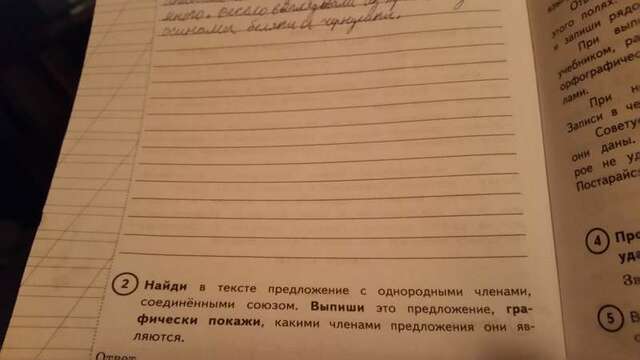 осинами беляки и
2 Найди в тексте предложение с однородными членами,
соединёнными союзом. Выпиши это предложение, гра-
фически покажи, какими членами предложения они яв-
ляются.
Ответ
этого полях.
и запиши рядо
При вып
учебником, ра
орфографичес
лами.
При н
Записи в че
Советуе
они даны.
рое не уд
Постарайс
4 Про
уда
Зв
5 В